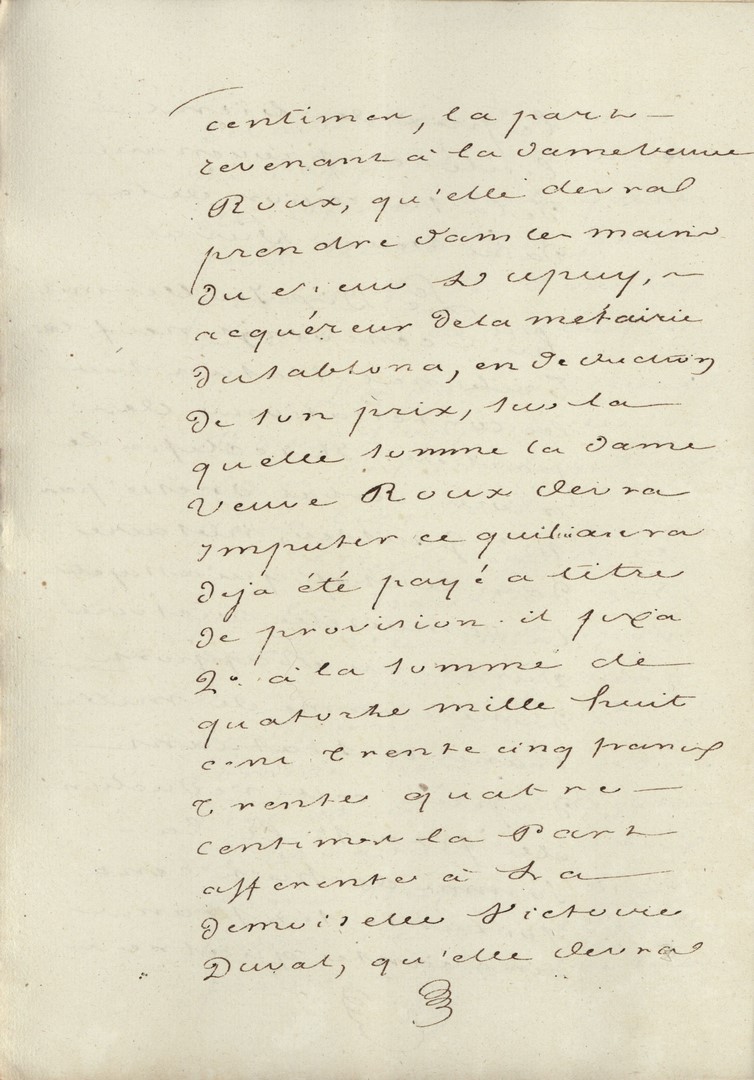 centimes, la part
revenant à la dame veuve
Roux, qu'elle devra
prendre dans les mains
du sieur Dupuy,
acquéreur de la métairie
du sablona, en deduction
de son prix, sur la
quelle somme la dame
veuve Roux devra
imputer ce qui lui aura
déjà été payé a titre
de provision. il fixa
2° à la somme de
quatorze mille huit
cent trente cinq francs
trente quatre
centimes la Part
afférente à la
demoiselle Victoire
Duval, qu'elle devra